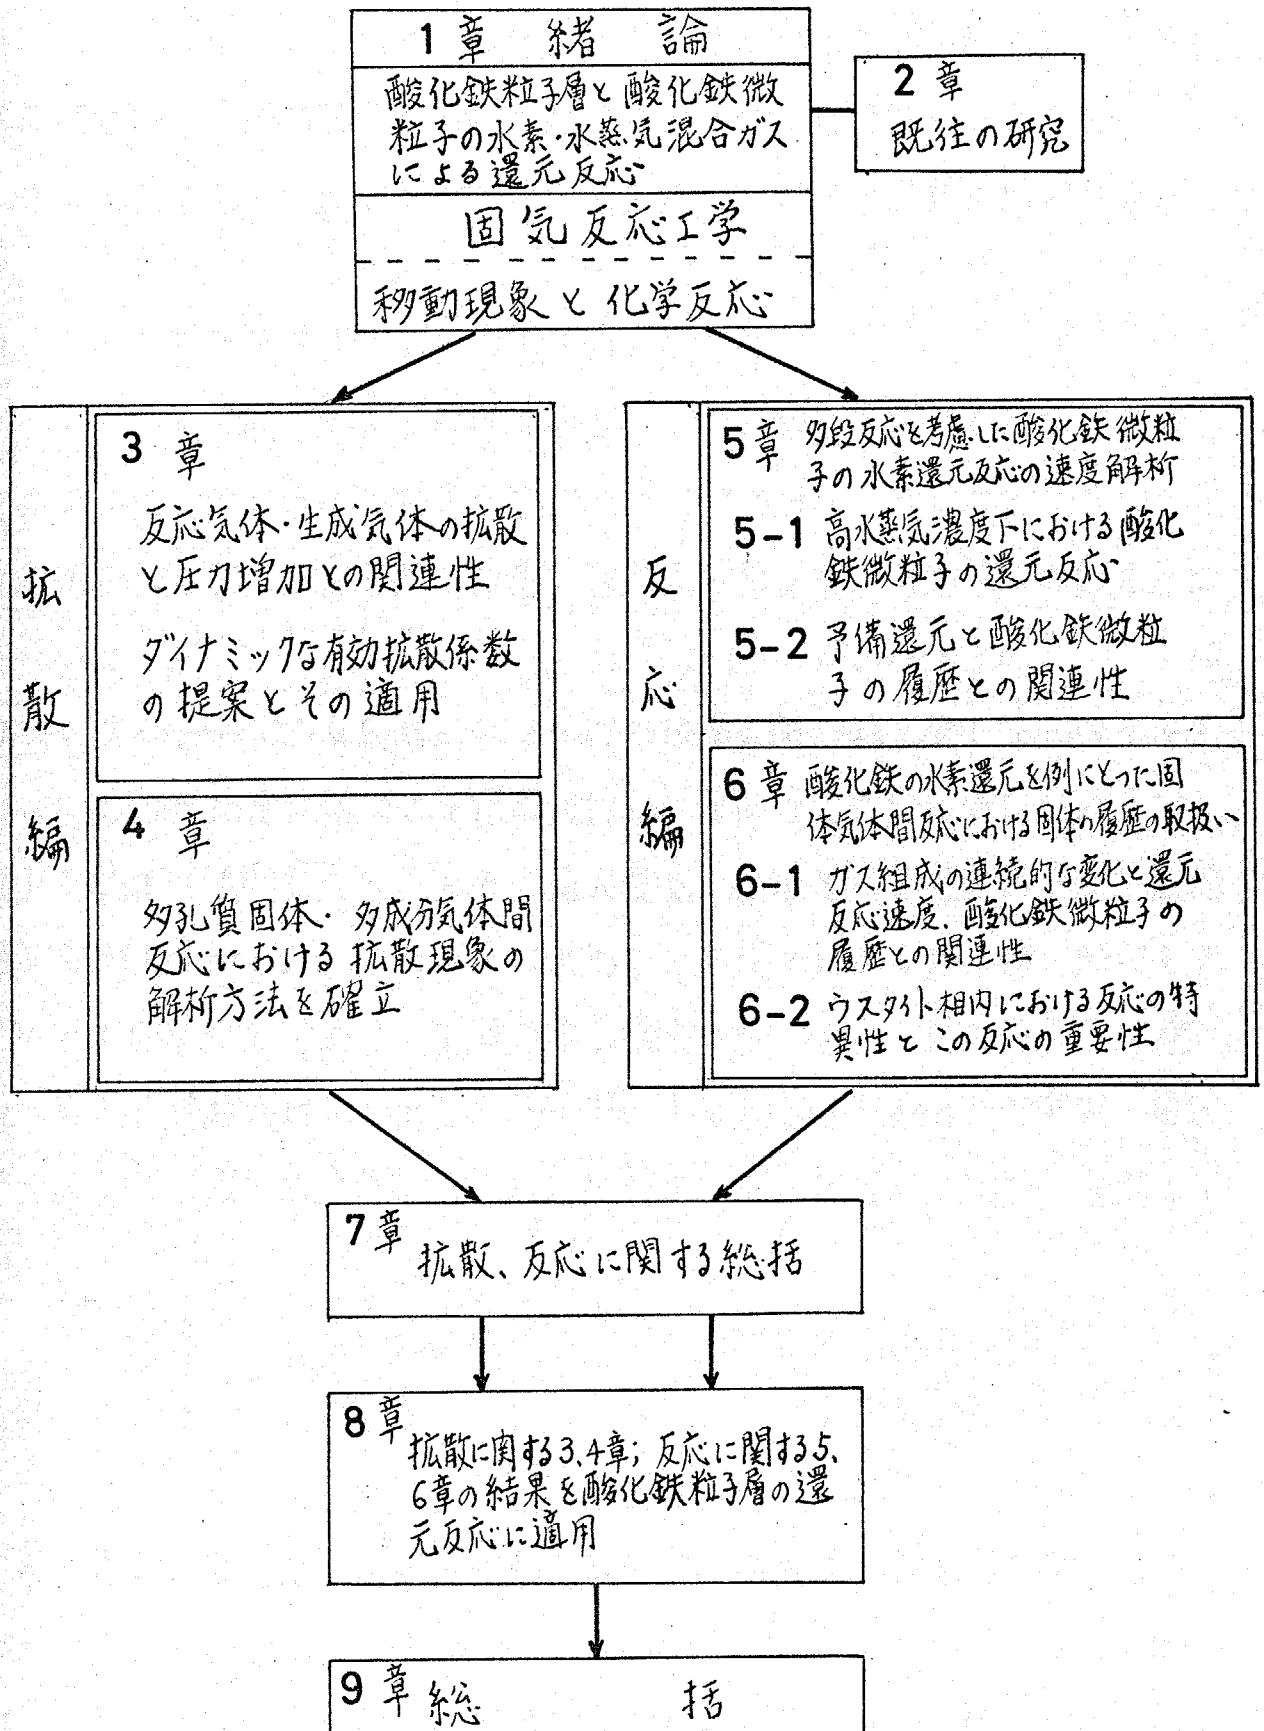 1章 緒論
酸化鉄粒子層と酸化鉄微
粒子の水素・水蒸気混合ガス
による還元反応
固気反応工学
移動現象と化学反応
2章
既往の研究
拡散編
3章
反応気体・生成気体の拡散
と圧力増加との関連性
ダイナミックな有効拡散係数
の提案とその適用
4章
多孔質固体・多成分気体間
反応における拡散現象の
解析方法を確立
反応編
5章 多段反応を考慮した酸化鉄微粒
子の水素還元反応の速度解析
5-1 高水蒸気濃度下における酸化
鉄微粒子の還元反応
5-2 予備還元と酸化鉄微粒
子の履歴との関連性
6章 酸化鉄の水素還元を例にとった固
体気体間反応における固体の履歴の取扱い
6-1 ガス組成の連続的な変化と還元
反応速度、酸化鉄微粒子の
履歴との関連性
6-2 ウスタイト相内における反応の特
異性とこの反応の重要性
7章
拡散、反応に関する総括
8章
拡散に関する3、4章; 反応に関する5、
6章の結果を酸化鉄粒子層の還
元反応に適用
9章 総括